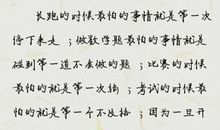 长跑的时候最怕的事情就是第一次
停下来走；做数学题最怕的事情就是
碰到第一道不会做的题；比赛的时候
最怕的就是第一次输；考试的时候最
怕的就是第一个不及格；因为一旦开